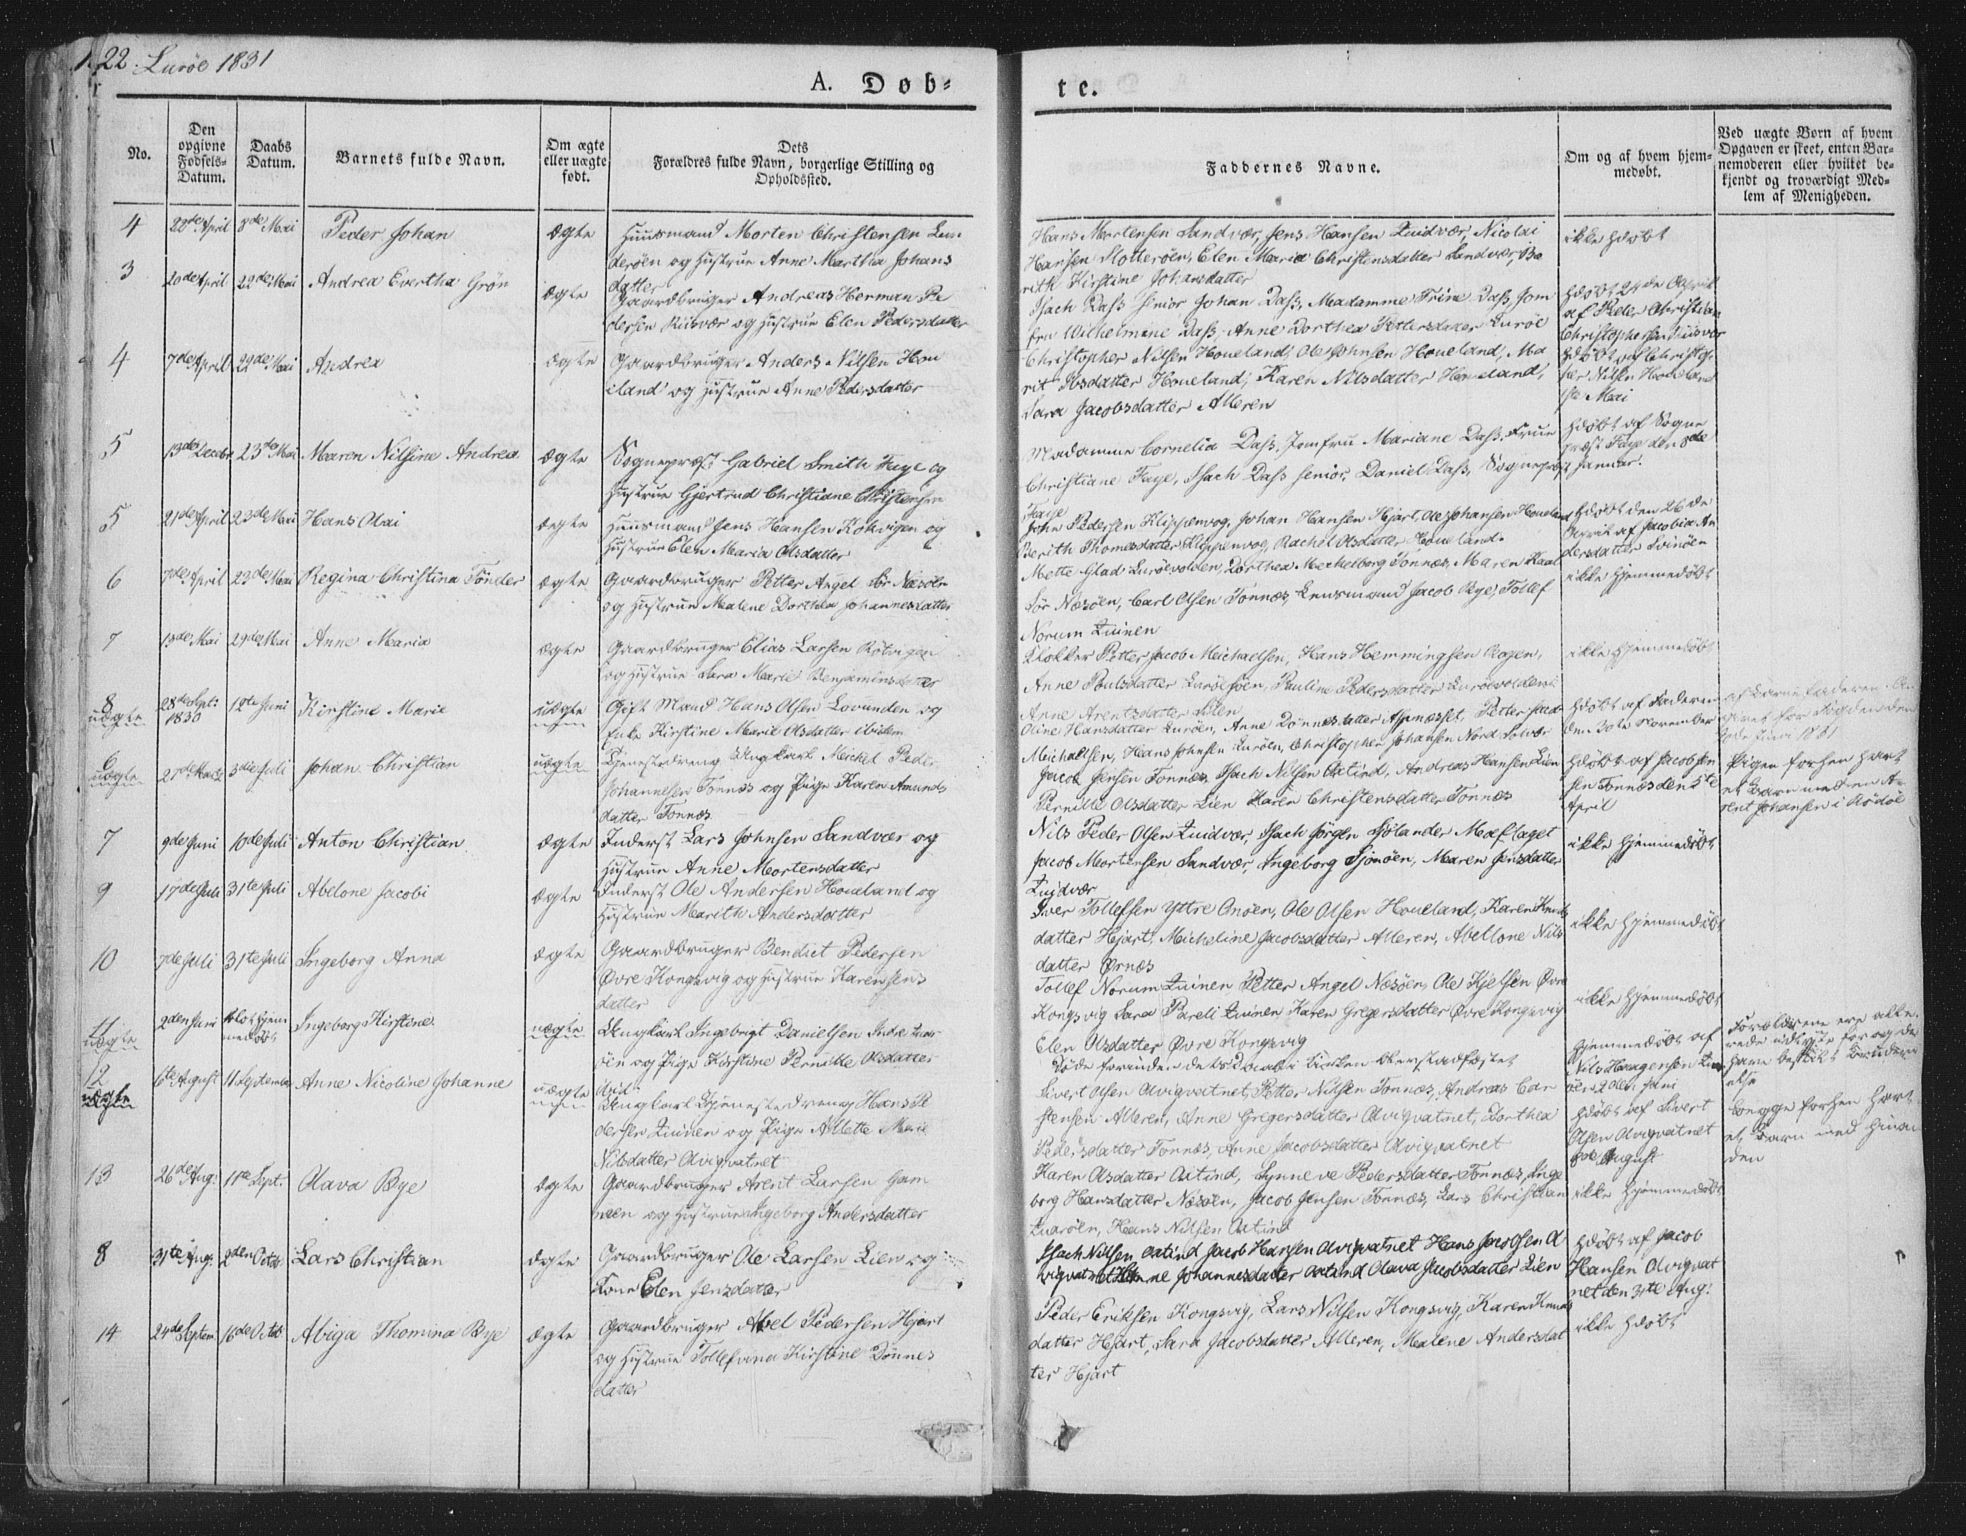 22. Lurøe 1831
A. Døb-
te.
No.
Den
opgivne
Fødsels-
Datum.
Daabs
Datum.
Barnets fulde Navn.
Om ægte
eller uægte
født.
Dets
Forældres fulde Navn, borgerlige Stilling og
Opholdssted.
Faddernes Navne.
Om og af hvem hjem-
medøbt.
Ved uægte Børn af hvem
Opgaven er skeet, enten Bar-
nemoderen eller hviltet be-
kjendt og troværdigt Med-
lem af Menigheden.
4 22de April 8de Mai Peder Johan ægte Huusmand Morten Christensen Lun
derøen og Hustrue Anne Martha Johans
datter
Hans Mortensen Sandvær, Jens Hansen Zuidvær, Nicolai
Hansen Slotterøen, Elen Maria Christensdatter Sandvær, Be
rith Kirstine Johansdatter
ikke hdøbt
3 20de April 22de Mai Andrea Evertha Grøn ægte Gaardbruger Andreas Herman Pe
dersen Kusvær og Hustrue Elen Pedersdatter
Isach Dass senior Johan Dass, Madamme Trine Dass, Jom
fru Wilhelmine Dass, Anne Dorthea Pettersdatter Lurøe
hdøbt 24de April
af Peder Christian
Christophersen
4 7de April 22de Mai Andrea ægte Gaardbruger Anders Nilsen Hou
eland og Hustrue Anne Pedersdatter
Christopher Nilsen Houeland, Ole Johnsen Houeland, Ma
rit Ibsdatter Houeland, Karen Nilsdatter Houeland,
Sara Jacobsdatter Alteren
hdøbt af Christo
fer Nilsen Houeland
1ste Mai
5 13de Decbr 23de Mai Maren Nilsine Andrea ægte Sognepræst Gabriel Smith Faye og
Hustrue Gjertrud Christiane Christensen
Madamme Cornelia Dass, Jomfru Mariane Dass, Frue
Christiane Faye, Isach Dass senior, Daniel Dass, Sognepræst
Faye
hdøbt af Sogne
præst Faye den 8de
Januar.
5 21de April 23de Mai Hans Olai ægte Huusmand Jens Hansen Kokvigen og
Hustrue Elen Maria Olsdatter
John Pedersen Klippenvog, Johan Hansen Hjart, Ole Johansen Houeland
Berith Thomesdatter Klippenvog, Rachel Olsdatter Houeland.
hdøbt den 26de
April af Jacobia An
dersdatter Svinøen
6 7de April 23de Mai Regina Christina Tønder ægte Gaardbruger Petter Angel Sør Næsøen
og Hustrue Malene Dorthea Johannesdatter
Mette Glad Lurøevolden, Dorthea Mechelborg Tonnes, Maren Kaal
Sør Næsøen, Carl Olsen Tonnes, Lensmand Jacob Bye, Tollef
Norum Zuinen
ikke hjemmedøbt
7 13de Mai 29de Mai Anne Maria ægte Gaardbruger Elias Larsen Kobvigen
og Hustrue Sara Marie Benjaminsdatter
Klokker Petter Jacob Meichaelsen, Hans Hemmingsen Aagen,
Anne Poulsdatter Lurøevolden, Pauline Pedersdatter Lurøevolden
Anne Arentsdatter Silen
ikke hjemmedøbt
8
uægte 28de Sept:
1830 12te Juni Kirstine Marie uægte Gift Mand Hans Olsen Lovunden og
Enke Kirstine Marie Olsdatter ibidem
Oline Hansdatter Lurøen, Anne Dønnesdatter Aspnæsset, Petter Jacob
Meichaelsen, Hans Johnsen Lurøen, Christopher Johansen Nord Solvær
hdøbt af Faderen
den 30te November
af Barnefaderen An
givet for Sogden den
Juni 1831
6
uægte 27de Marts 3die Juli Johan Christian uægte Tjenestedreng Ungkarl Meichel Peder
Johannesen Tonnes og Pige Karen Amunds
datter Tonnes
Jacob Jensen Tonnes, Isach Nilsen Oxtind, Andreas Hansen Lien
Pernille Olsdatter Lien Karen Christensdatter Tonnes
hdøbt af Jacob Jen
sen Tonnes den 5te
April
Pigen forhen havt
et Barn med en A-
rent Johansen i Rødøe
7 9de Juni 10de Juli Anton Christian ægte Inderst Lars Johnsen Sandvær og
Hustrue Anne Mortensdatter
Nils Peder Olsen Zuidvær, Isach Jørgen Sjølander Maaflaget
Jacob Mortensen Sandvær, Ingeborg Sjonøen, Maren Jensdatter
Zuidvær
ikke hjemmedøbt
9 17de Juli 31te Juli Abelone Jacobi ægte Inderst Ole Andersen Houeland og
Hustrue Marith Andersdatter
Iver Tollefsen Yttre Onøen, Ole Olsen Houeland, Karen Knuds
datter Hjart, Micheline Jacobsdatter Alteren, Abellone Nils
datter Ørnes
ikke hjemmedøbt
10 7de Juli 31te Juli Ingeborg Anna ægte Gaardbruger Bendict Pedersen
Øvre Kongsvig og Hustrue Karen Jens
datter
Tollef Norum Zuinen Petter Angel Næsøen, Ole Kjelsen Øvre
Kongsvig Sara Pareli Zuinen Karen Gregersdatter Øvre Kongsvig
Elen Olsdatter Øvre Kongsvig
ikke hjemmedøbt
11
uægte 2den Juni blot hjem
medøbt Ingeborg Kirstine uægte Ungkarl Ingebrigt Danielsen Indre Qvar
øen og Pige Kirstine Pernille Olsdatter
ibid:
Døde forinden dets Daab i Kirken blev stadfæstet
hjemmedøbt af
Nils Haagensen
øen 2den Juni
Forældrene ere alle
rede udtyste for og de
have bestilt Troulovelse
12
uægte 6te August 11 September Anne Nicoline Johanne uægte Ungkarl Tjenestedreng Hans Pe
dersen Zuinen og Pige Allette Marie
Nilsdatter Olvigvatnet
Sivert Olsen Olvigvatnet, Petter Nilsen Tonnes, Andreas Car
stensen Alteren, Anne Gregersdatter Olvigvatnet, Dorthea
Pedersdatter Tonnes, Anne Jacobsdatter Olvigvatnet
hdøbt af Sivert
Olsen Olvigvatnet
August
begge forhen havt
et Barn med hinan
den
13 26de Aug: 11te Sept. Olava Bye ægte Gaardbruger Arent Larsen Gam
meen og Hustrue Ingeborg Andersdatter
Karen Olsdatter Oxtind, Synneve Pedersdatter Tonnes, Inge
borg Hansdatter Næsøen, Jacob Jensen Tonnes, Lars Christian
Qvarøen, Hans Nilsen Oxtind
ikke hjemmedøbt
8 31te Aug. 2den Octob Lars Christian ægte Gaardbruger Ole Larsen Lien og
Kone Elen Jensdatter
Isach Nilsen Oxtind Jacob Hansen Olvigvatnet Hans Jacobsen O
lvigvatnet Johannesdatter Oxtind Olava Jacobsdatter Lien
hdøbt af Jacob
Hansen Olvigvat
net den 31te Aug:
14 24de Septem. 16de Octob Abiga Thomina Bye ægte Gaardbruger Abel Pedersen Hjart
og Hustrue Tollefvina Kirstine Dønnes
datter
Peder Eriksen Kongsvig, Lars Nilsen Kongsvig, Karen Knuds
datter Hjart, Sara Jacobsdatter Alteren, Malene Andersdat
ter Hjart
ikke hdøbt